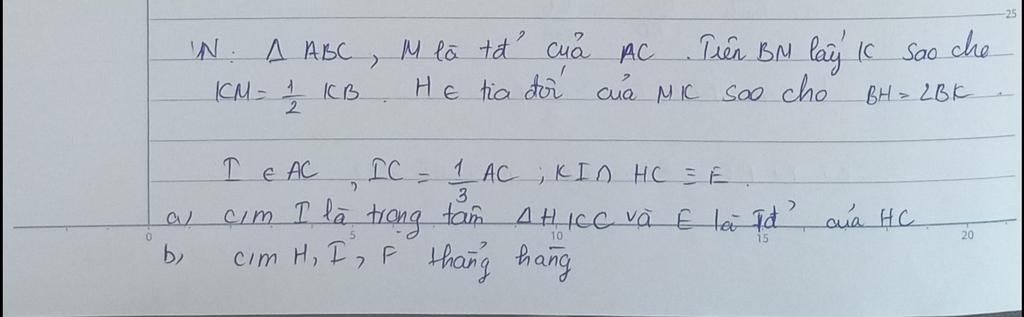 VN: Δ ABC, M là tđ' của AC. Trên BM lấy K sao cho
KM = 1/2 KB. H ∈ tia đối của MK sao cho BH = 2BK.
I ∈ AC, IC = 1/3 AC; KI ∩ HC ≡ E.
a) c/m I là trọng tâm ΔHKC và E là Tđ' của HC
b) c/m H, I, F thẳng hàng
0 5 10 15 20
25